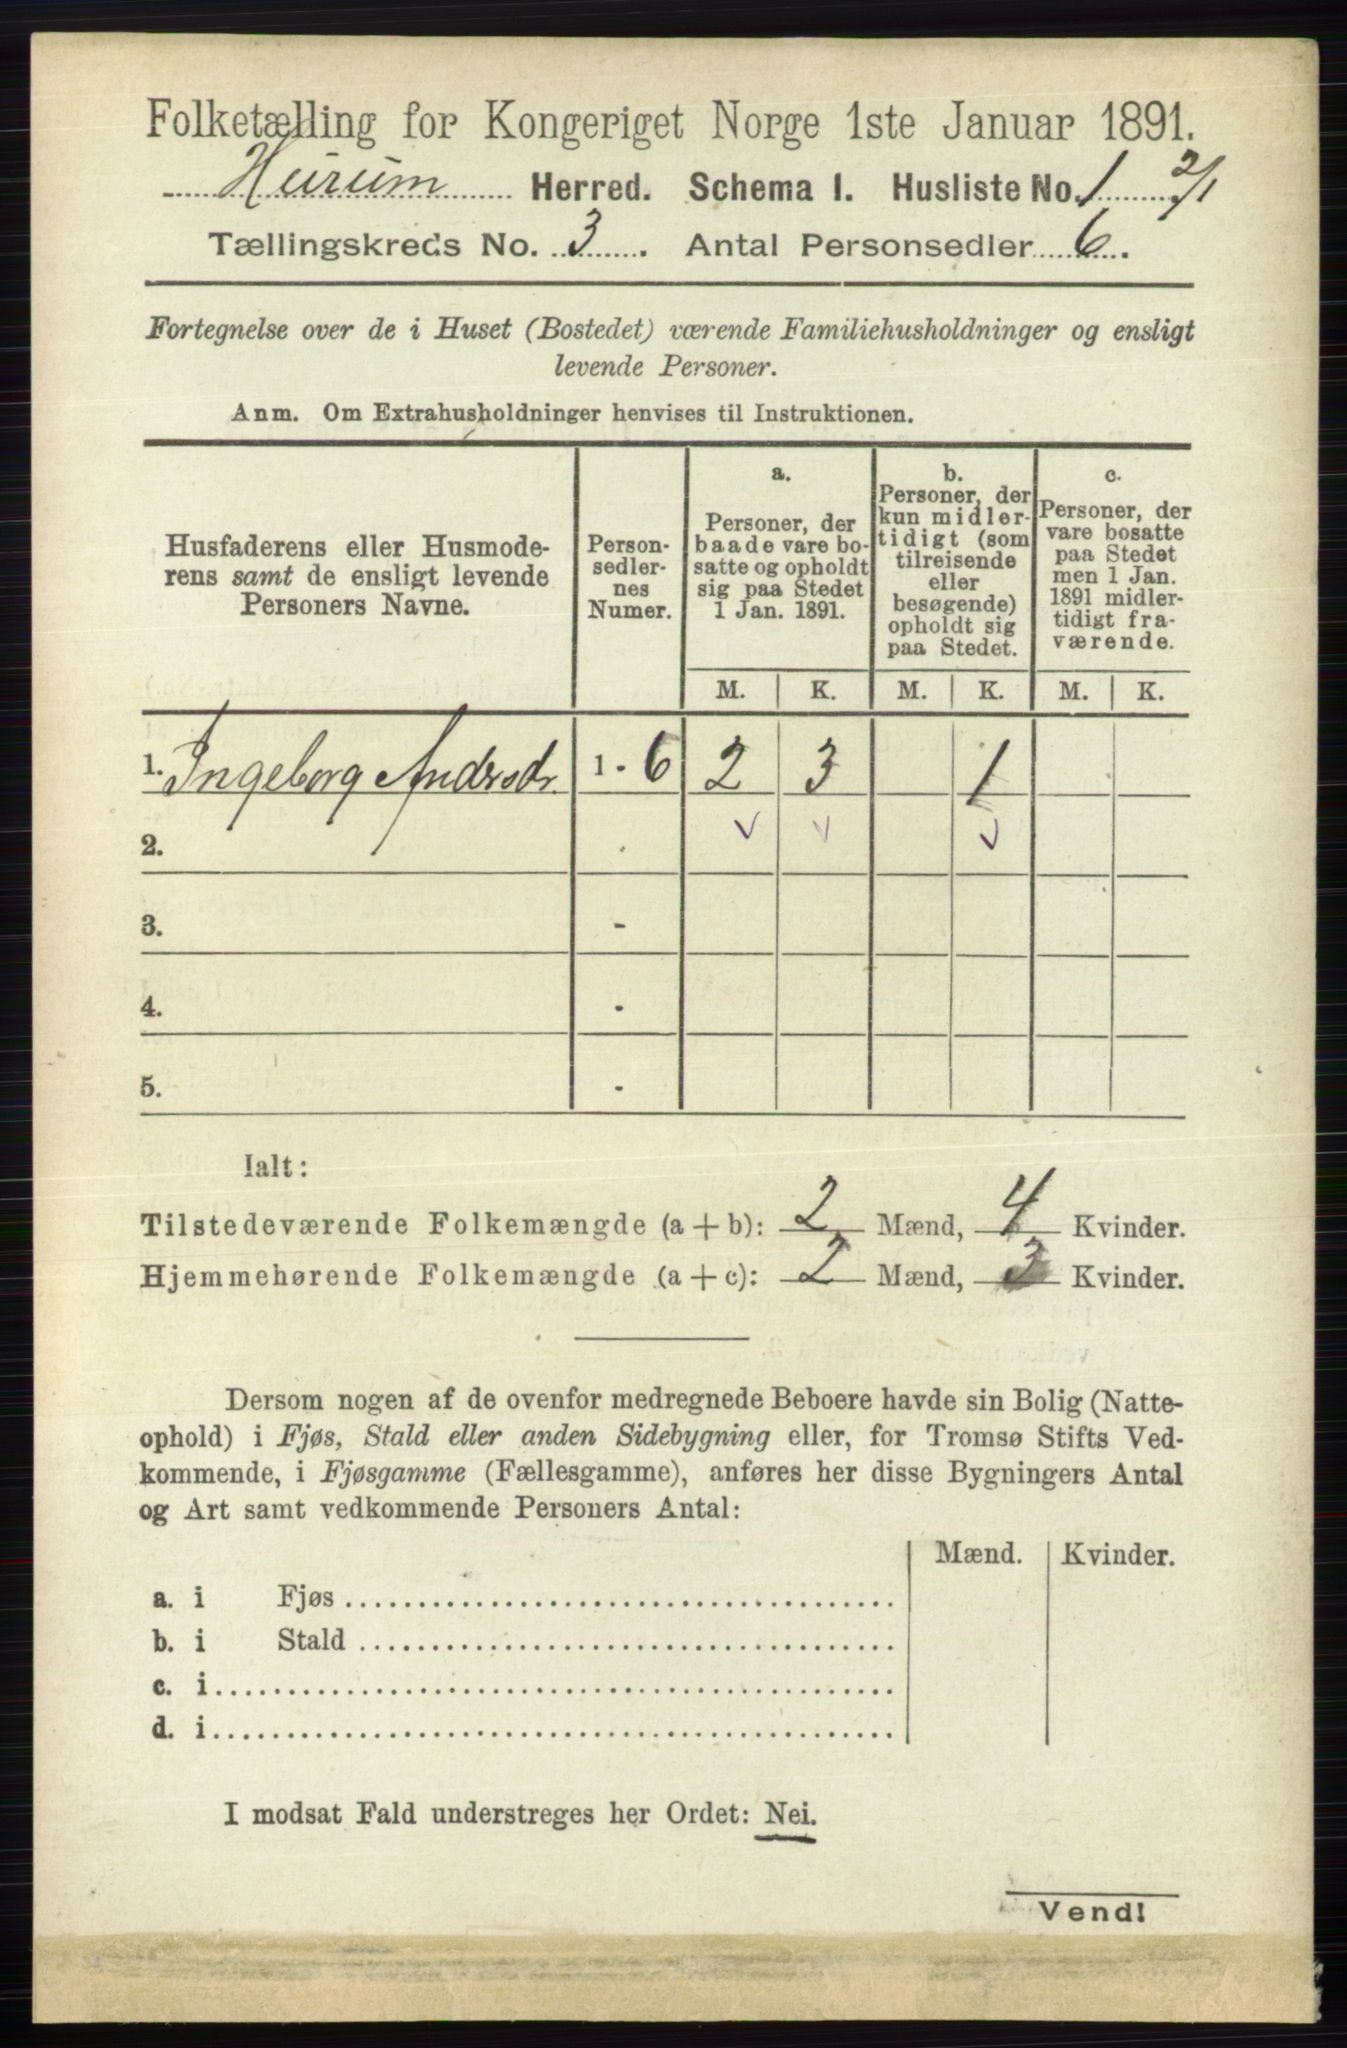 Folketælling for Kongeriget Norge 1ste Januar 1891.
Hurum Herred. Schema I. Husliste No. 1 2/1
Tællingskreds No. 3. Antal Personsedler 6.
Fortegnelse over de i Huset (Bostedet) værende Familiehusholdninger og ensligt
levende Personer.
Anm. Om Extrahusholdninger henvises til Instruktionen.
Husfaderens eller Husmode-
rens samt de ensligt levende
Personers Navne.
Person-
sedler-
nes
Numer.
a.
Personer, der
baade vare bo-
satte og opholdt
sig paa Stedet
1 Jan. 1891.
b.
Personer, der
kun midler-
tidigt (som
tilreisende
eller
besøgende)
opholdt sig
paa Stedet.
c.
Personer, der
vare bosatte
paa Stedet
men 1 Jan.
1891 midler-
tidigt fra-
værende.
M. K. M. K. M. K.
1. Ingeborg Andersdr. 1 - 6 2 3 1
2.
3. -
4. -
5. -
Ialt:
Tilstedeværende Folkemængde (a + b): 2 Mænd, 4 Kvinder.
Hjemmehørende Folkemængde (a + c): 2 Mænd, 3 Kvinder.
Dersom nogen af de ovenfor medregnede Beboere havde sin Bolig (Natte-
ophold) i Fjøs, Stald eller anden Sidebygning eller, for Tromsø Stifts Ved-
kommende, i Fjøsgamme (Fællesgamme), anføres her disse Bygningers Antal
og Art samt vedkommende Personers Antal:
Mænd. Kvinder.
a. i Fjøs
b. i Stald
c. i
d. i
I modsat Fald understreges her Ordet: Nei.
Vend!